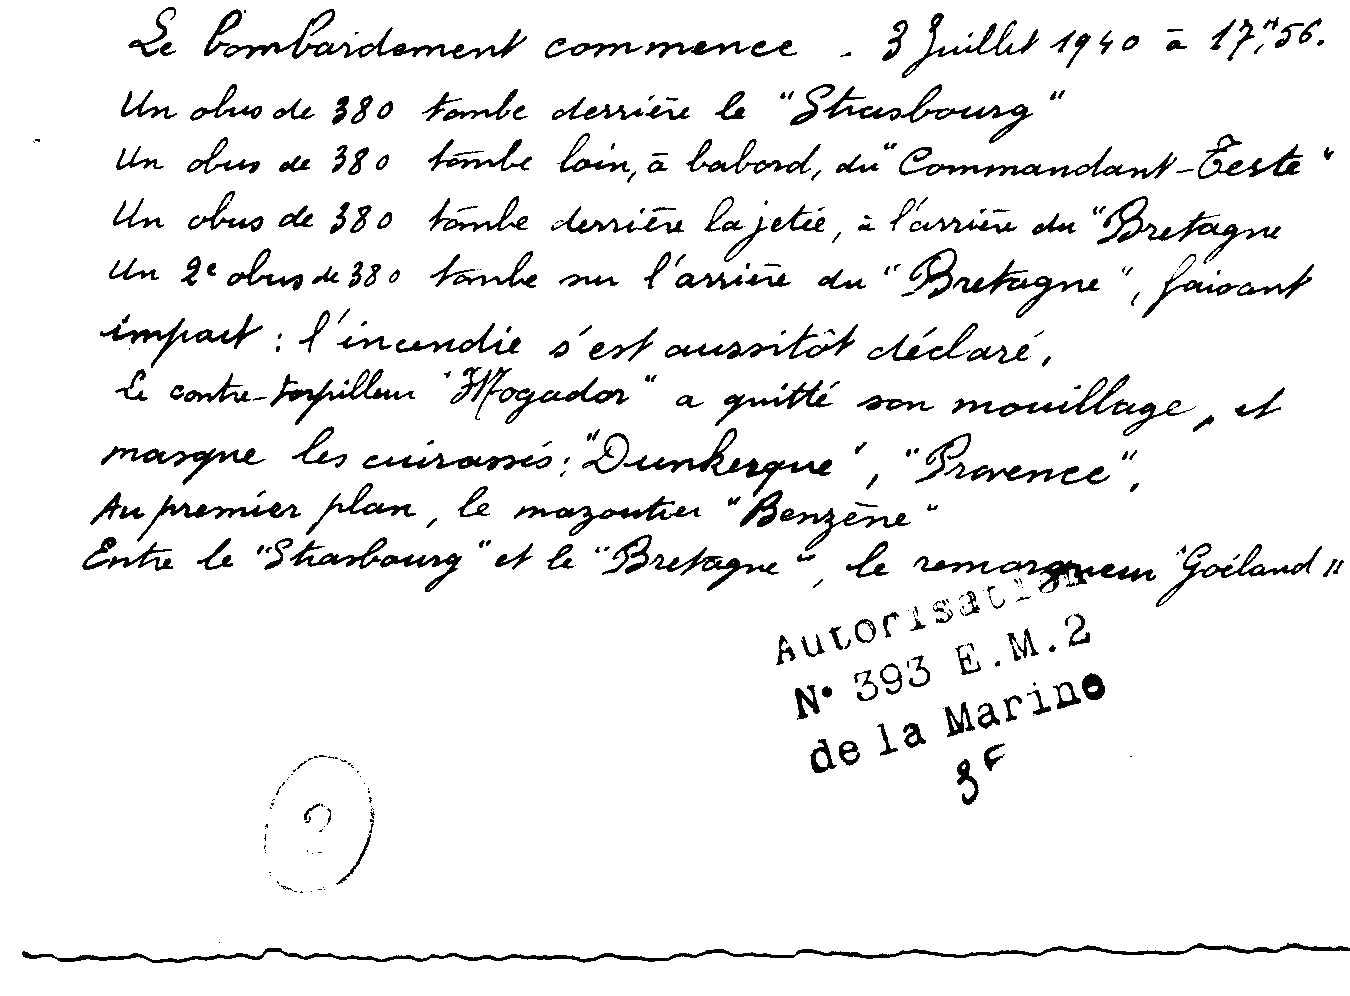 Le bombardement commence - 3 Juillet 1940 à 17h,56.
Un obus de 380 tombe derrière le "Strasbourg"
Un obus de 380 tombe loin, à babord, du "Commandant-Teste"
Un obus de 380 tombe derrière la jetée, à l'arrière du "Bretagne
Un 2e obus de 380 tombe sur l'arrière du "Bretagne", faisant
impact : l'incendie s'est aussitôt déclaré,
Le contre-torpilleur "Mogador" a quitté son mouillage, et
masque les cuirassés : "Dunkerque", "Provence",
Au premier plan, le mazoutier "Benzène"
Entre le "Strasbourg" et le "Bretagne", le remorqueur "Goéland"
Autorisation
N° 393 E.M.2
de la Marine
3F
2